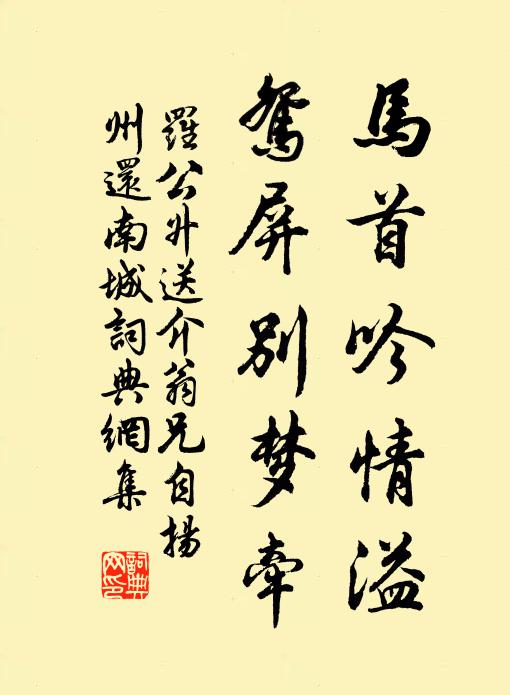 馬首吟情溢
鴛屏別梦牽
羅公升送介翁兄自揚
州還南城詞典網集
詞典
网印